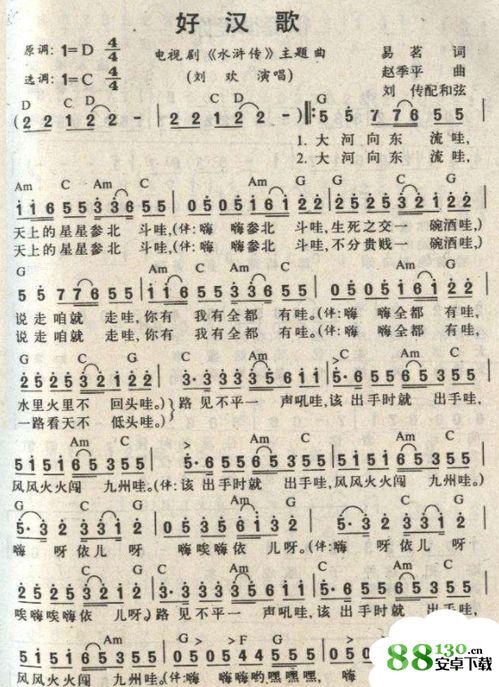 好汉歌
原调:1=D 4/4 电视剧《水浒传》主题曲 易茗 词
选调:1=C 4/4 (刘欢 演唱) 赵季平 曲
刘 传配和弦
D C D C D G
(2 2 1 2 2 - 2 2 1 2 2 - ) 5 5 7 7 6 5 5
1.大河向东 流哇,
2.大河向东 流哇,
Am C Am C Am C
1 1 6 5 5 3 3 6 5 5 0 5 0 5 1 6 5 5 3 3 6 5 5
天上的星星参北 斗哇,(伴:嗨 嗨参北 斗哇,生死之交一 碗酒哇,)
天上的星星参北 斗哇,(伴:嗨 嗨参北 斗哇,不分贵贱一 碗酒哇,)
G Am C Am G
5 5 7 7 6 5 5 1 1 6 5 5 3 3 1 2 2 0 5 0 5 1 6 1 2 2
说走咱就 走哇,你有 我有全都 有哇。(伴:嗨 嗨全都 有哇,
说走咱就 走哇,你有 我有全都 有哇。(伴:嗨 嗨全都 有哇,
G C G Am C Am
2 5 2 5 2 3 2 1 2 2 2 5 2 5 3 5 6 1 1 5· 6 5 5 6 5 3 5 5
水里火里不 回头哇。)路 见不平一 声吼哇,该 出手时就 出手哇,
一路看天不 低头哇。)
Am C Am C Am C
5 1 5 1 6 5 3 5 5 5· 6 5 5 6 5 3 5 5 5 1 5 1 6 5 3 5 5
风风火火闯 九州哇。(伴:该 出手时就 出手哇,风风火火闯 九州哇。)
G C G Am G C
5· 3 2 3 3 1 2 0 5 3 5 6 1 3 2 5· 3 2 3 3 1 2
嗨 呀依儿 呀 嗨唉嗨依 儿呀。(伴:嗨 呀依儿 呀
G C G Am C Am
2 5 2 5 2 3 2 1 2 2 2 5 2 5 3 5 6 1 1 5· 6 5 5 6 5 3 5 5
唉嗨嗨依 儿呀。)路 见不平一 声吼哇,该 出手时就 出手哇,
Am C G F G
5 1 5 1 6 5 3 5 5
风风火火闯 九州哇。嗨嗨嗨哟嘿嘿嘿, 嗨
88130.cn
安卓下载